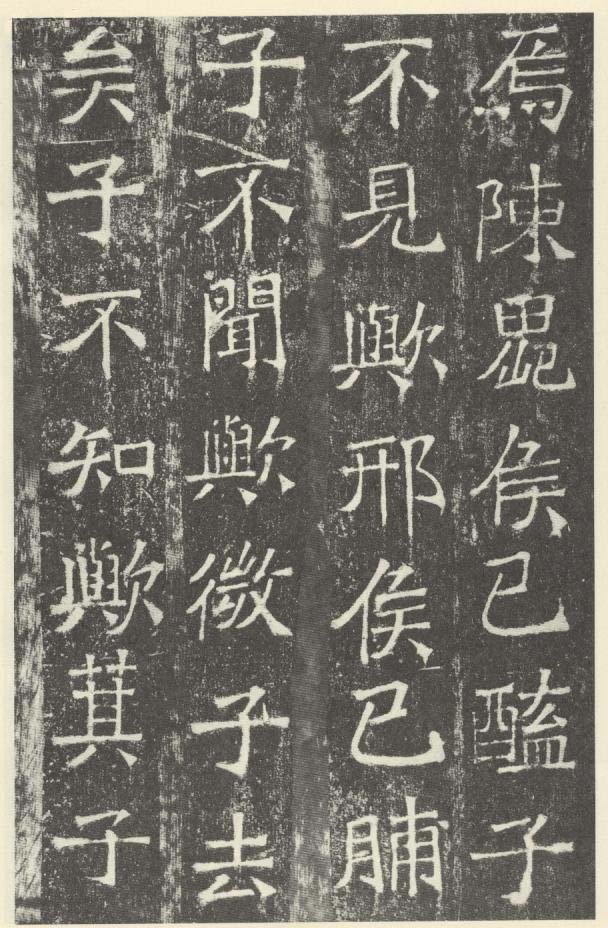 焉陳侯已醢子
不見歟邢侯已脯
子不聞歟微子去
矣子不知歟萁子